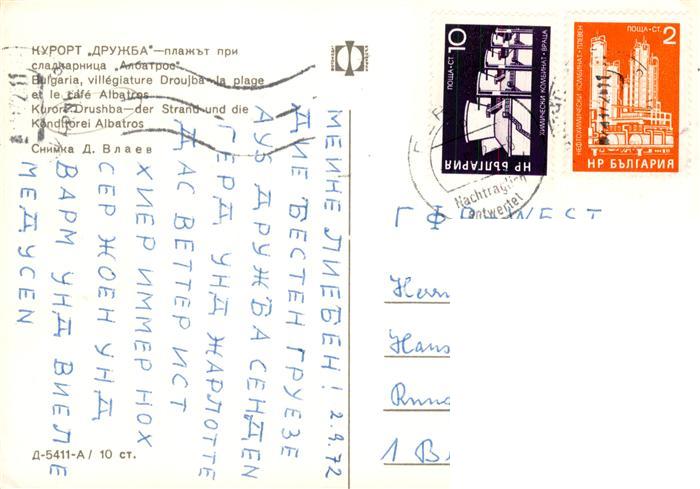 КУРОРТ „ДРУЖБА"—плажът при
сладкарница „Албатрос"
Bulgaria, villégiature Droujba—la plage
et le café Albatros
Kurort Drushba—der Strand und die
Konditorei Albatros
Снимка Д. Влаев
МЕИНЕ ЛИЕБЕН! 2.9.72
ДИЕ БЕСТЕН ГРУЕЗЕ
АУЗ ДРУЖБА СЕНДЕН
ГЕРД УНД ЖАРЛОТТЕ
ДАС ВЕТТЕР ИСТ
ХИЕР ИММЕР НОХ
СЕР ЖОЕН УНД
ВАРМ УНД ВИЕЛЕ
МЕДУСЕН
Д-5411-А / 10 ст.
10
ПОЩА·СТ.
ХИМИЧЕСКИ КОМБИНАТ·ВРАЦА
НР БЪЛГАРИЯ
ПОЩА·СТ. 2
НЕФТОХИМИЧЕСКИ КОМБИНАТ·ПЛЕВЕН
НР БЪЛГАРИЯ
Nachträglich
entwertet
Herrn
Hans
1 B